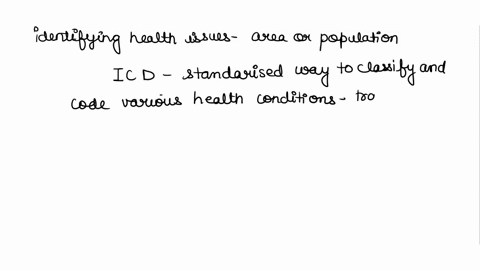 identifying health issues- area or population
ICD - standarised way to classify and
code various health conditions - tro